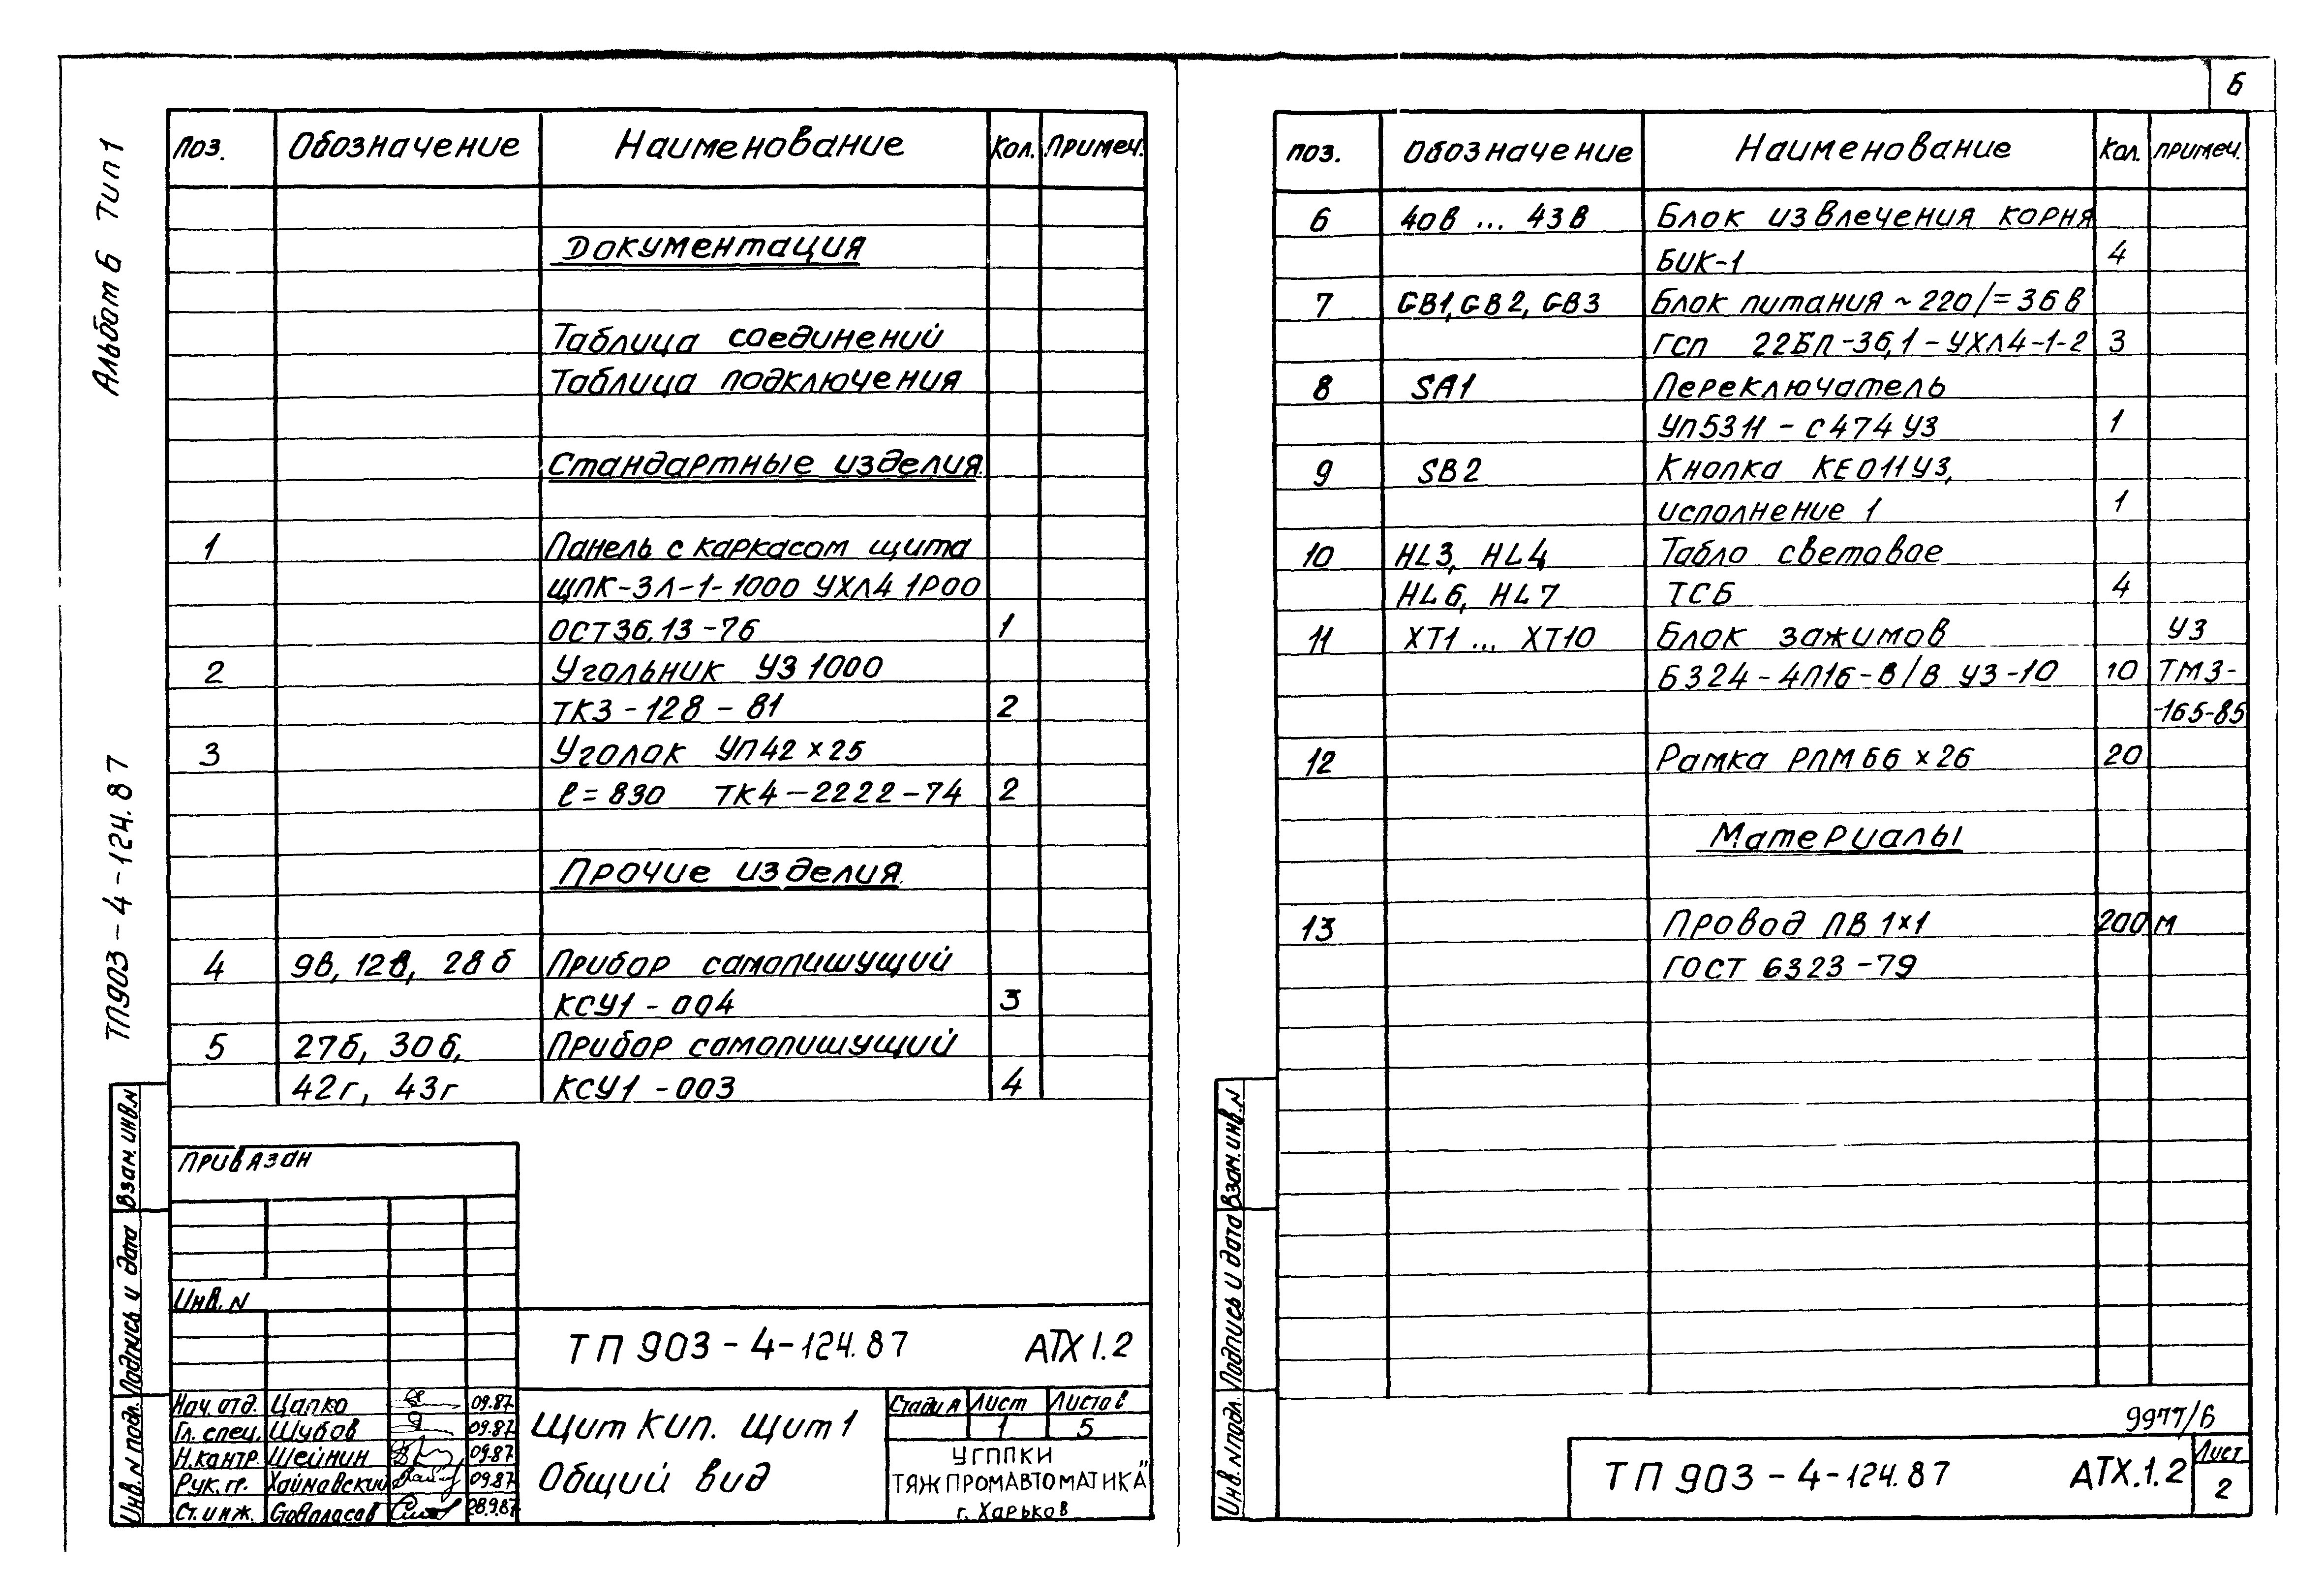 Альбом 6 Тип 1
ТП903-4-124.87
Поз. Обозначение Наименование Кол. Примеч.
Документация
Таблица соединений
Таблица подключения
Стандартные изделия.
1 Панель с каркасом щита
ЩПК-3Л-1-1000 УХЛ4 1Р00
ОСТ36.13-76 1
2 Угольник УЗ 1000
ТК3-128-81 2
3 Уголок УП42×25
ℓ=830 ТК4-2222-74 2
Прочие изделия.
4 9в, 12в, 28б Прибор самопишущий
КСУ1-004 3
5 27б, 30б, Прибор самопишущий
42г, 43г КСУ1-003 4
Привязан
Инв. N
ТП 903-4-124.87 АТХ1.2
Нач. отд. Цапко 09.87
Гл. спец. Шубов 09.87
Н.контр. Шейнин 09.87
Рук. гр. Хаймовский 09.87
Ст. инж. 28.9.87
Щит КИП. Щит 1
Общий вид
Стадия Лист Листов
1 5
УГППКИ
ТЯЖПРОМАВТОМАТИКА"
г. Харьков
Взам. инв. N
Подпись и дата
Инв. N подл.
6
поз. Обозначение Наименование Кол. примеч.
6 40в ... 43в Блок извлечения корня
БИК-1 4
7 GB1, GB2, GB3 Блок питания ~220/=36в
ГСП 22БП-36,1-УХЛ4-1-2 3
8 SA1 Переключатель
УП5311-С474У3 1
9 SB2 Кнопка КЕ011У3,
исполнение 1 1
10 HL3, HL4, Табло световое
HL6, HL7 ТСБ 4
11 XT1 ... XT10 Блок зажимов У3
БЗ24-4П16-В/В У3-10 10 ТМ3-
-165-85
12 Рамка РПМ 66×26 20
Материалы
13 Провод ПВ 1×1 200 м
ГОСТ 6323-79
9977/6
ТП 903-4-124.87 АТХ.1.2
Лист
2
Взам. инв. N
Подпись и дата
Инв. N подл.